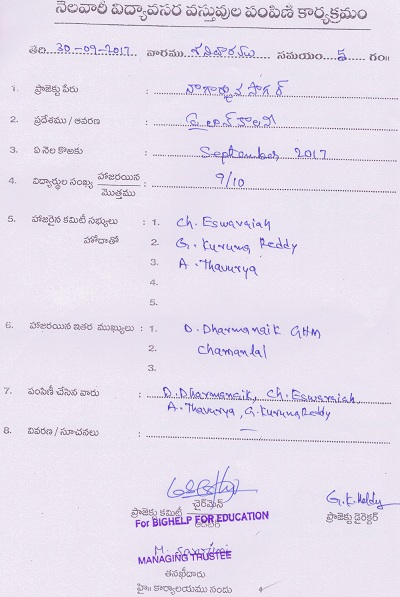 నెలవారీ విద్యావసర వస్తువుల పంపిణి కార్యక్రమం
తేది 30-09-2017 వారము శనివారము సమయం 5 గం॥
1. ప్రాజెక్టు పేరు : నాగార్జున సాగర్
2. ప్రదేశము / ఆవరణ : పైలాన్ కాలని
3. ఏ నెల కొఱకు : September 2017
4. విద్యార్థుల సంఖ్య హాజరయిన / మొత్తము : 9/10
5. హాజరైన కమిటీ సభ్యులు హోదాతో : 1. Ch. Eswaraiah
2. G. Kuruna Reddy
3. A. Thavurya
4.
5.
6. హాజరయిన ఇతర ముఖ్యులు : 1. D. Dharmanaik GHM
2. Chamandal
3.
7. పంపిణీ చేసిన వారు : D. Dharmanaik, Ch. Eswaraiah,
A. Thavurya, G. Kuruna Reddy
8. వివరణ / సూచనలు : —
ప్రాజెక్టు కమిటీ చైర్మన్
G.K. Reddy
ప్రాజెక్టు డైరెక్టర్
For BIGHELP FOR EDUCATION
MANAGING TRUSTEE
తనఖీదారు
హై॥ కార్యాలయము నందు